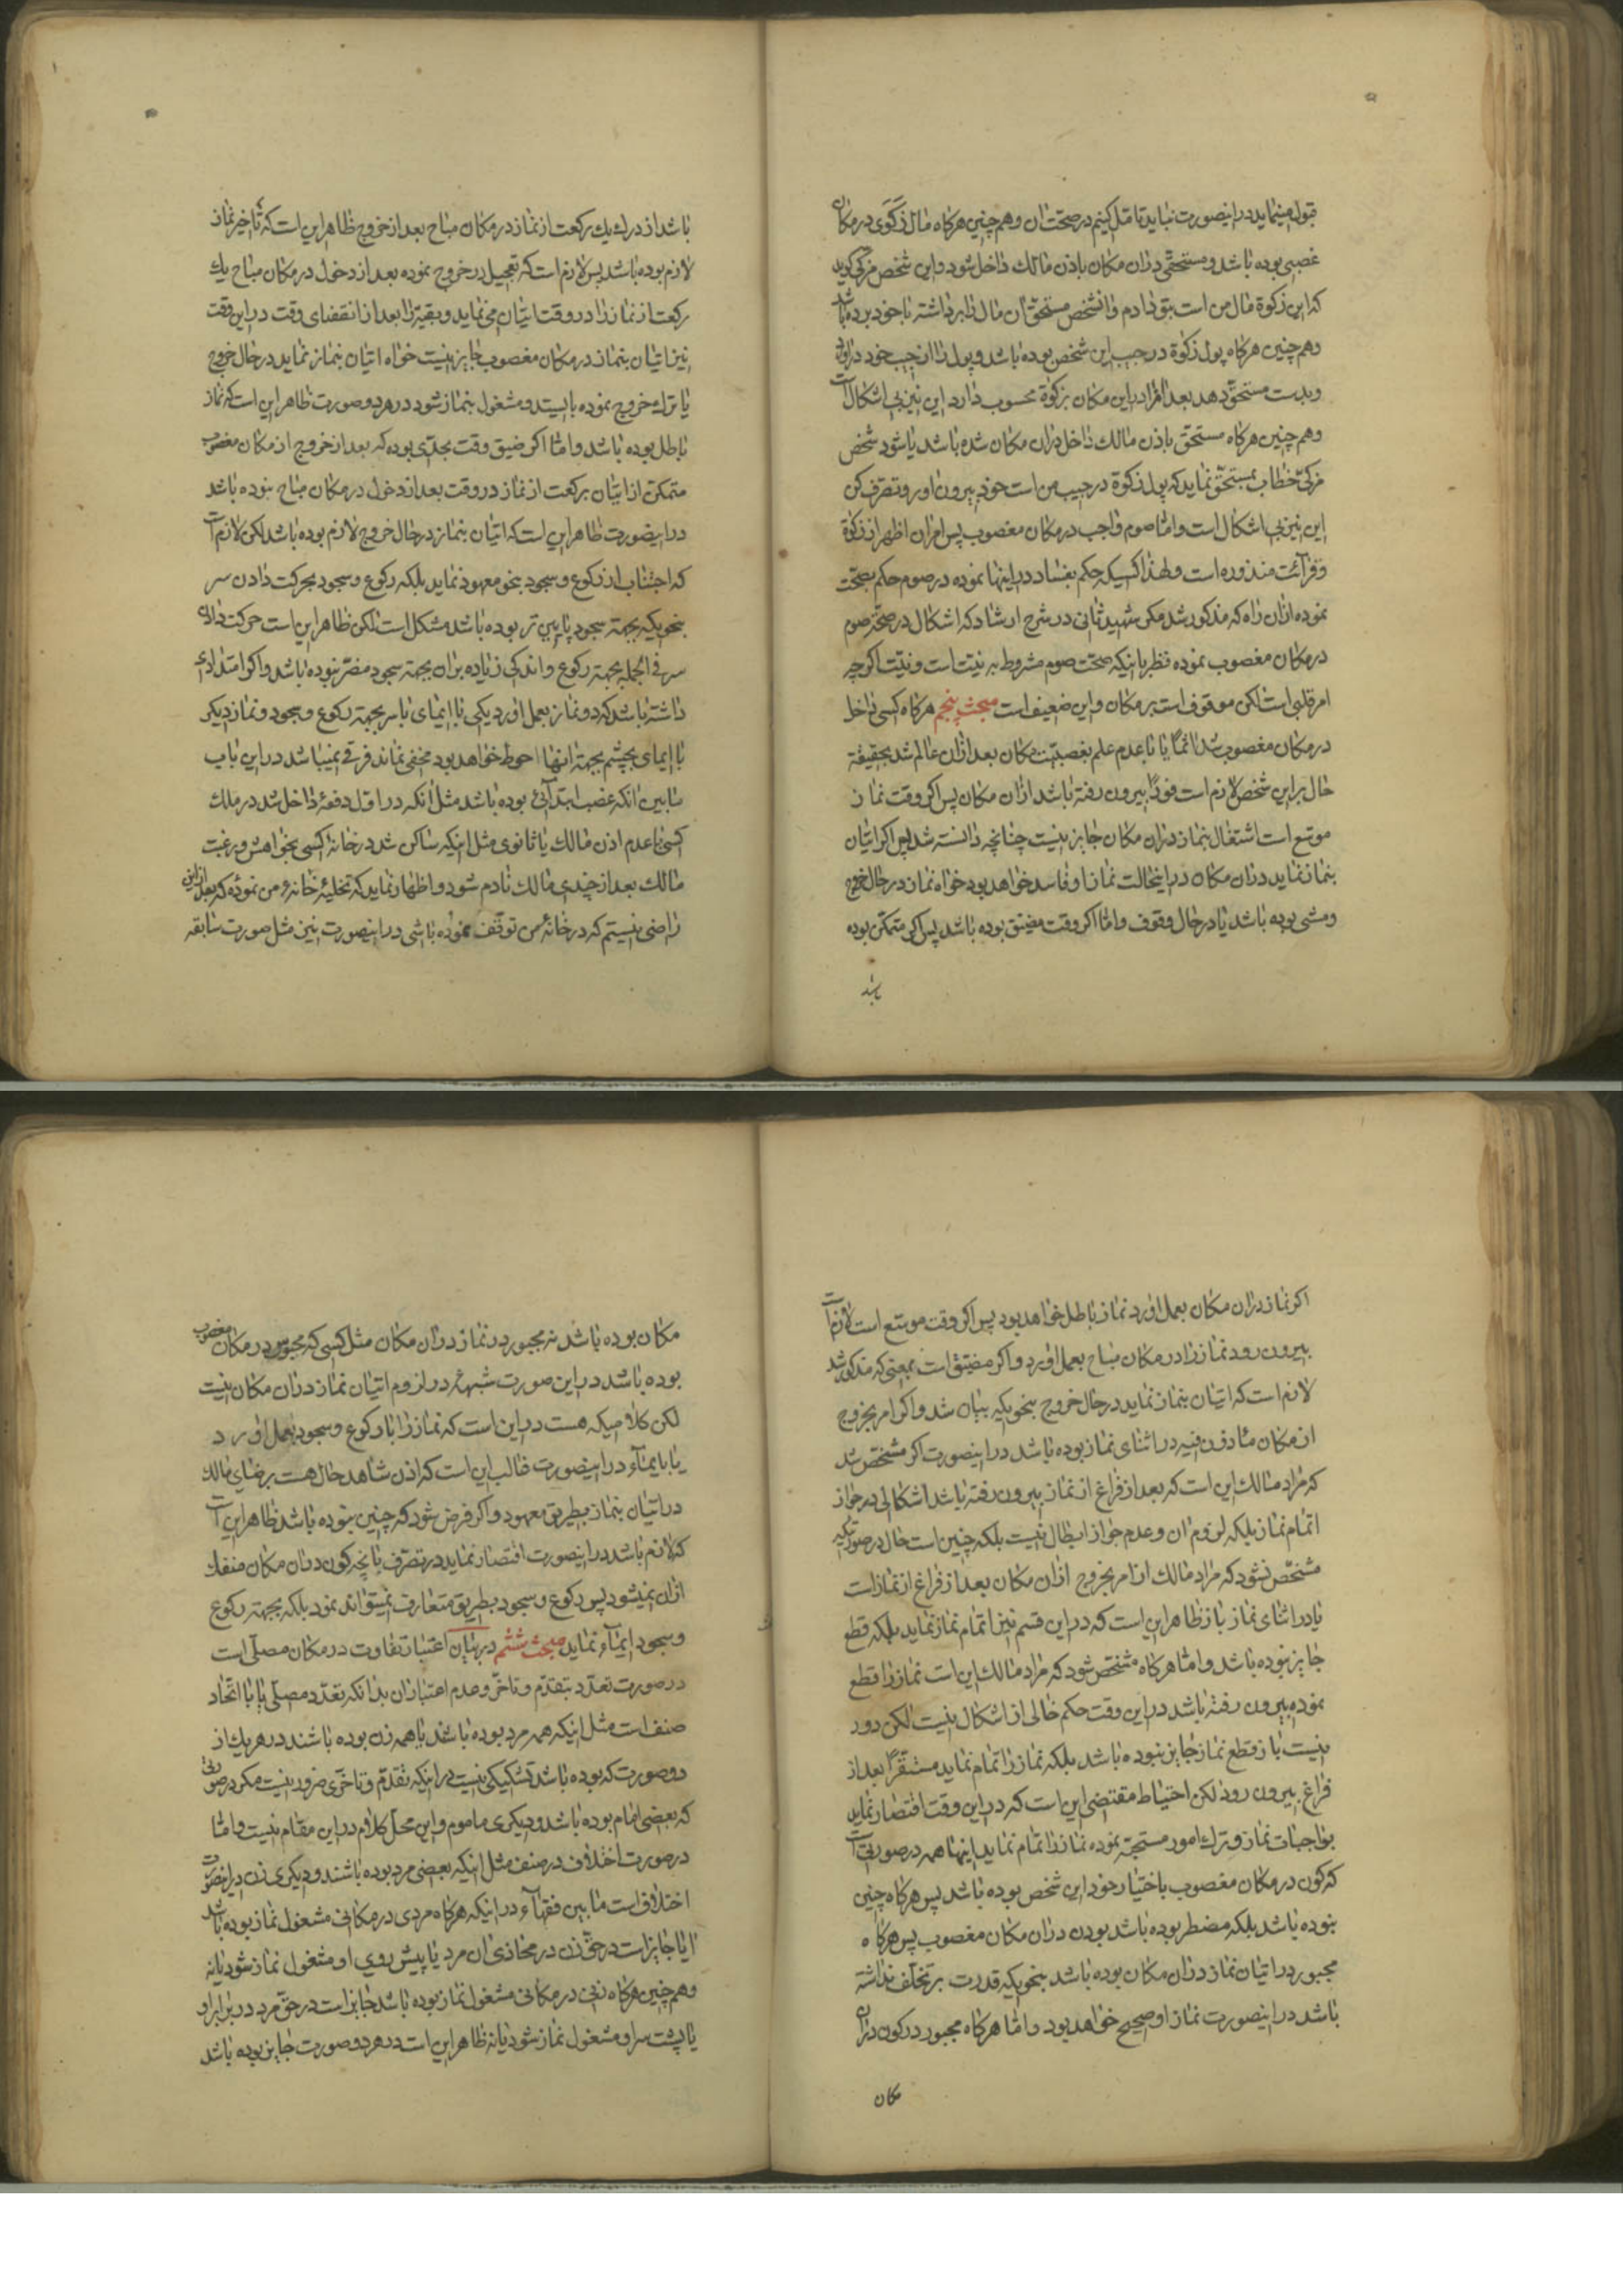 قبول مینماید در اینصورت نباید تامل کنیم در صحت ان و همچنین هرکاه مال زکوی در مکان
غصبی بوده باشد و مستحقی در ان مکان باذن مالک داخل شود و این شخص مزکی کوید
که این زکوة مال من است بتو دادم و انشخص مستحق ان مال را برداشته با خود برده باشد
و همچنین هرکاه پول زکوة در جیب این شخص بوده باشد و پول را از جیب خود دراورد
و بدست مستحق دهد بعد در این مکان بزکوة محسوب دارد این نیز بی اشکال است
و همچنین هرکاه مستحق باذن مالک داخل در ان مکان شده باشد یا شود شخص
مزکی خطاب بمستحق نماید که پول زکوة در جیب من است خود بیرون اور و تصرف کن
این نیز بی اشکال است و اما صوم واجب در مکان مغصوب پس امر ان اظهر از زکوة
و قرائت منذوره است و لهذا کسیکه حکم بفساد در اینها نموده در صوم حکم بصحت
نموده از ان راه که مذکور شد مکر شهید ثانی در شرح ارشاد که اشکال در صحت صوم
در مکان مغصوب نموده نظر باینکه صحت صوم مشروط به نیت است و نیت اکرچه
امر قلبی است لکن موقوف است بر مکان و این ضعیف است مبحث پنجم هرکاه کسی داخل
در مکان مغصوب شد یا با عدم علم بغصبیت مکان بعد از ان عالم شد بحقیقة
حال بر این شخص لازم است فورًا بیرون رفته باشد از ان مکان پس اکر وقت نماز
موسع است اشتغال بنماز در ان مکان جایز نیست چنانچه دانسته شد پس اکر اتیان
بنماز نماید در ان مکان در اینحالت نماز او فاسد خواهد بود خواه نماز در حال خروج
و مشی بوده باشد یا در حال وقوف و اما اکر وقت مضیق بوده باشد پس اکر متمکن بوده
باشد
باشد از درک یک رکعت از نماز در مکان مباح بعد از خروج ظاهر این است که تاخیر نماز
لازم بوده باشد پس لازم است که تعجیل در خروج نموده بعد از دخول در مکان مباح یک
رکعت از نماز را در وقت اتیان می نماید و بقیه را بعد از انقضای وقت در این وقت
نیز اتیان بنماز در مکان مغصوب جایز نیست خواه اتیان بنماز نماید در حال خروج
یا ترک خروج نموده بایستد و مشغول بنماز شود در هر دو صورت ظاهر این است که نماز
باطل بوده باشد و اما اکر ضیق وقت بحدّی بوده که بعد از خروج از مکان مغصوب
متمکن از اتیان برکعت از نماز در وقت بعد از دخول در مکان مباح نبوده باشد
در اینصورت ظاهر این است که اتیان بنماز در حال خروج لازم بوده باشد لکن لازم است
که اجتناب از رکوع و سجود بنحو معهود نماید بلکه رکوع و سجود بحرکت دادن سر
بنحویکه بجهة سجود پایین تر بوده باشد مشکل است لکن ظاهر این است حرکت دادن
سر فی الجمله بجهة رکوع و اندکی زیاده بر ان بجهة سجود مضر نبوده باشد و اکر امتدادی
داشته باشد که دو نماز بعمل اورد یکی با ایمای با سر بجهة رکوع و سجود و نماز دیکر
با ایمای بچشم بجهة انها احوط خواهد بود مخفی نماند فرقی نمیباشد در این باب
مابین انکه غصب ابتدائی بوده باشد مثل انکه در اول دفعة داخل شد در ملک
کسی با عدم اذن مالک یا ثانوی مثل اینکه ساکن شد در خانه کسی بخواهش و رغبت
مالک بعد از چندی مالک نادم شود و اظهار نماید که تخلیه خانه من نموده که بعد از این
راضی نیستم که در خانه من توقف نموده باشی در اینصورت نیز مثل صورت سابقه
اکر نماز در ان مکان بعمل اورد نماز باطل خواهد بود پس اکر وقت موسع است لازم است
بیرون رود نماز را در مکان مباح بعمل اورد و اکر مضیق است بمعنی که مذکور شد
لازم است که اتیان بنماز نماید در حال خروج بنحویکه بیان شد و اکر امر بخروج
از مکان ماذون فیه در اثنای نماز بوده باشد در اینصورت اکر مشخص شد
که مراد مالک این است که بعد از فراغ از نماز بیرون رفته باشد اشکالی در جواز
اتمام نماز بلکه لزوم ان و عدم جواز ابطال نیست بلکه چنین است حال در صورتیکه
مشخص نشود که مراد مالک از امر بخروج از ان مکان بعد از فراغ از نماز است
یا در اثنای نماز باز ظاهر این است که در این قسم نیز اتمام نماز نماید بلکه قطع
جایز نبوده باشد و اما هرکاه مشخص شود که مراد مالک این است نماز را قطع
نموده بیرون رفته باشد در این وقت حکم خالی از اشکال نیست لکن دور
نیست باز قطع نماز جایز نبوده باشد بلکه نماز را تمام نماید مستقرًا بعد از
فراغ بیرون رود لکن احتیاط مقتضی این است که در این وقت اقتصار نماید
بواجبات نماز و ترک امور مستحبه نموده نماز را تمام نماید اینها همه در صورتی است
که کون در مکان مغصوب باختیار خود این شخص بوده باشد پس هرکاه چنین
نبوده باشد بلکه مضطر بوده باشد بودن در ان مکان مغصوب پس هرکاه
مجبور در اتیان نماز در ان مکان بوده باشد بنحویکه قدرت بر تخلف نداشته
باشد در اینصورت نماز او صحیح خواهد بود و اما هرکاه مجبور در کون در ان
مکان
مکان بوده باشد نه مجبور در نماز در ان مکان مثل کسی که محبوس در مکان مغصوب
بوده باشد در این صورت شبهه در لزوم اتیان نماز در ان مکان نیست
لکن کلامیکه هست در این است که نماز را با رکوع و سجود بعمل اورد
یا بایماء در اینصورت غالب این است که اذن شاهد حال هست برضای مالک
در اتیان بنماز بطریق معهود و اکر فرض شود که چنین نبوده باشد ظاهر این است
که لازم باشد در اینصورت اقتصار نماید در تصرف بانچه کون در ان مکان منفک
از ان نمیشود پس رکوع و سجود بطریق متعارف نمیتواند نمود بلکه بجهة رکوع
و سجود ایماء نماید مبحث ششم در بیان اعتبار تفاوت در مکان مصلّی است
در صورت تعدّد بتقدّم و تاخّر و عدم اعتبار ان بدانکه تعدّد مصلّی یا با اتحاد
صنف است مثل اینکه همه مرد بوده باشند یا همه زن بوده باشند در هر یک از
دو صورت که بوده باشد تشکیکی نیست در اینکه تقدّم و تاخّری ضرور نیست مکر در صورتی
که بعضی امام بوده باشد و دیکری ماموم و این محل کلام در این مقام نیست و اما
در صورت اختلاف در صنف مثل اینکه بعضی مرد بوده باشند و دیکری زن در اینصورت
اختلاف است ما بین فقهاء در اینکه هرکاه مردی در مکانی مشغول نماز بوده باشد
ایا جایز است در حق زن در محاذی ان مرد یا پیش روی او مشغول نماز شود یا نه
و همچنین هرکاه زنی در مکانی مشغول نماز بوده باشد جایز است در حق مرد در برابر او
یا پشت سر او مشغول نماز شود یا نه ظاهر این است در هر دو صورت جایز بوده باشد